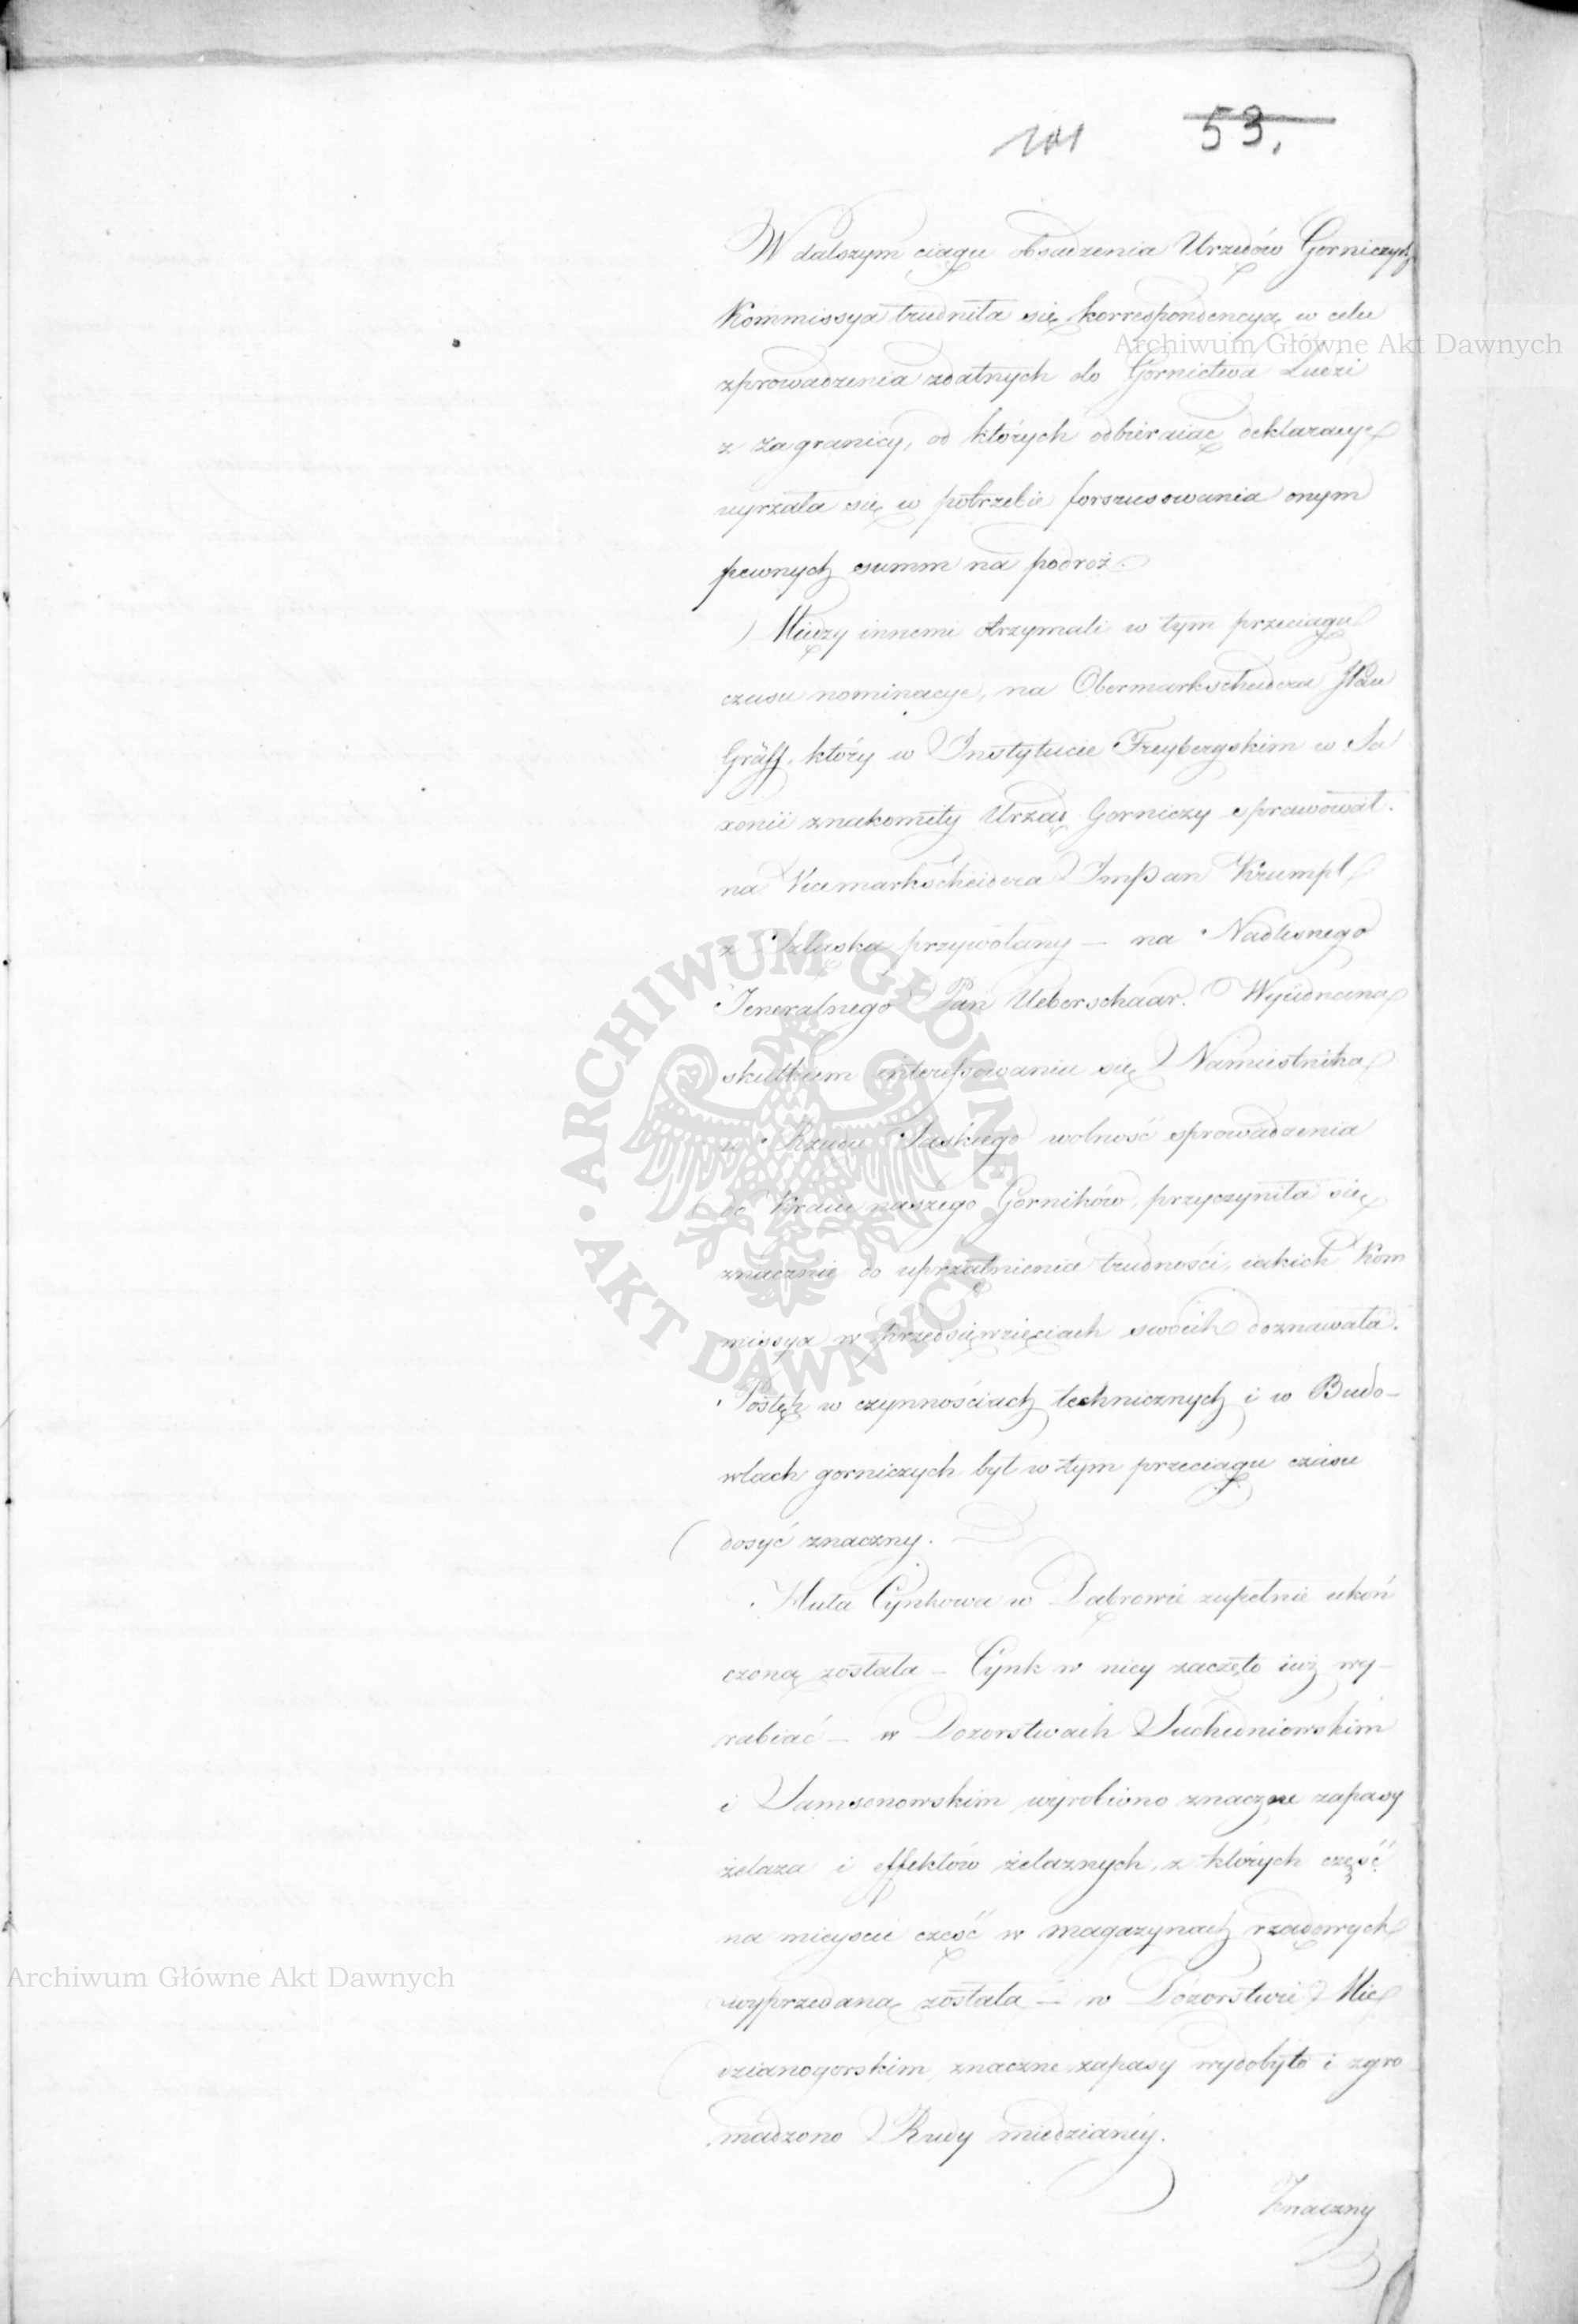 101 53.
W dalszym ciągu obsadzenia Urzędów Gorniczych
Kommissya trudniła się korrespondencyą w celu
zprowadzenia zdatnych do Gornictwa Ludzi
z zagranicy, od których odbieraiąc deklaracye
uyrzała się w potrzebie forszusowania onym
pewnych summ na podroż.
Między innemi otrzymali w tym przeciągu
czasu nominacye, na Obermarkscheidera JPan
Gräff, który w Instytucie Freybergskim w Sa
xonii znakomity Urząd Gorniczy sprawował.
na Vicemarkscheidera Impan Krumpl
z Szląska przywołany — na Nadlesnego
Jeneralnego Pan Ueberschaar. Wyiednana
skutkiem interessowania się Namiestnika
u Rządu Saskiego wolność sprowadzenia
do Kraiu naszego Gorników, przyczyniła się
znacznie do uprzątnienia trudności, iakich Kom
missya w przedsięwzięciach swoich doznawała.
Postęp w czynnościach technicznych i w Budo-
wlach gorniczych był w tym przeciągu czasu
dosyć znaczny.
Huta Cynkowa w Dąbrowie zupełnie ukoń
czoną została – Cynk w niey zaczęto iuż wy-
rabiać – w Dozorstwach Suchedniowskim
i Samsonowskim wyrobiono znaczne zapasy
żelaza i effektów żelaznych, z których część
na mieyscu część w magazynach rządowych
wyprzedaną została – w Dozorstwie Mie
dzianogorskim, znaczne zapasy wydobyto i zgro
madzono Rudy miedzianéy.
Znaczny
Archiwum Główne Akt Dawnych
Archiwum Główne Akt Dawnych
ARCHIWUM GŁÓWNE AKT DAWNYCH